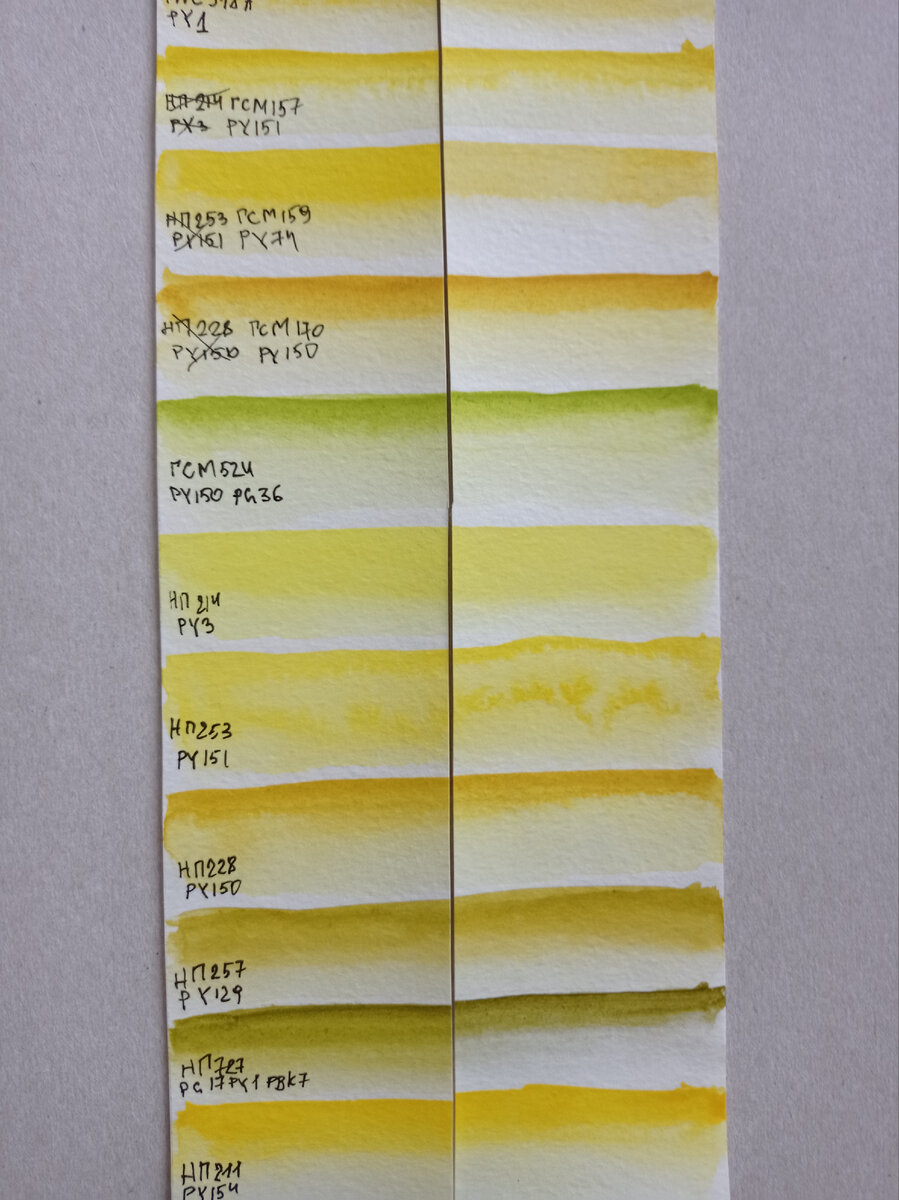 PY1
НП 214 ГСМ157
PY3 PY151
НП253 ГСМ159
PY151 PY74
НП228 ГСМ170
PY150 PY150
ГСМ524
PY150 PG36
НП 214
PY3
НП253
PY151
НП228
PY150
НП257
PY129
НП727
PG17 PY1 PBK7
НП211
PY154